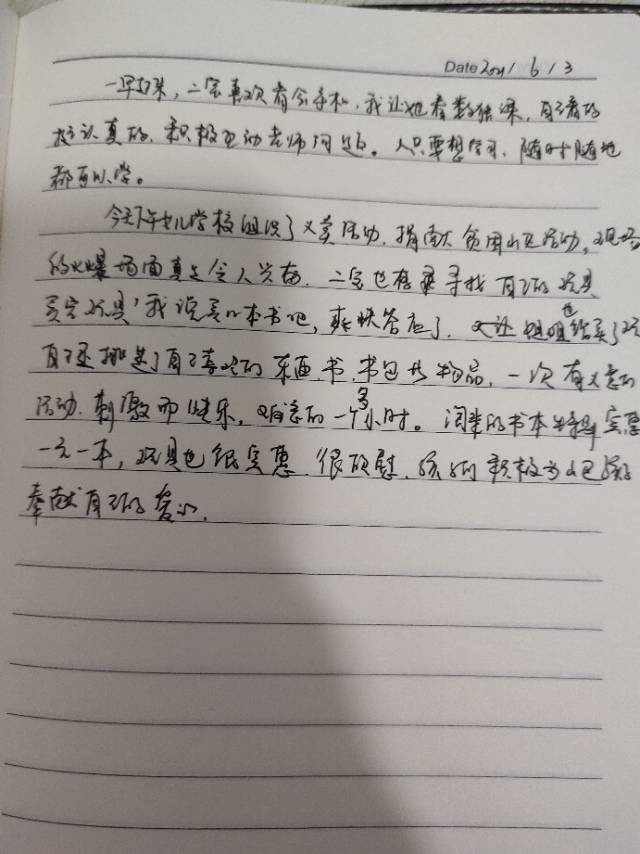 Date 2021 / 6 / 3
一早起来，二宝喜欢看会手机，我让他看数独课，自己看的
挺认真的，积极互动老师问题。人只要想学习，随时随地
都可以学。
今天下午女儿学校组织了义卖活动，捐献贫困山区活动，现场
的火爆场面真是令人兴奋，二宝也在寻找自己的玩具
买完玩具，我说买几本书吧，爽快答应了，又让姐姐也给买了玩
自己还挑选了自己喜欢的东西，书，书包等物品，一次有义意的
活动，刺激而快乐，满意的一个小时。淘来的书本特别实惠
一元一本，玩具也很实惠，很欣慰，孩子们积极为山区
奉献自己的爱心。